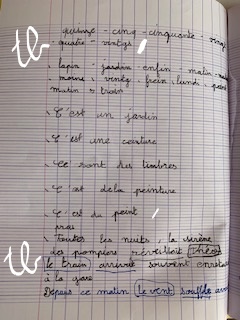 TB
quinze - cinq - cinquante - vingt
- quatre - vingts
. lapin - jardin - enfin - matin
. moins, vingt, frein, lundi, peint
matin, train
. C'est un jardin
. C'est une ceinture
. Ce sont des timbres
. C'est de la peinture
. C'est du peint
Toutes les nuits la sirène
des pompiers réveillait
TB
le train arrivait souvent en
à la gare
Depuis ce matin le vent souffle